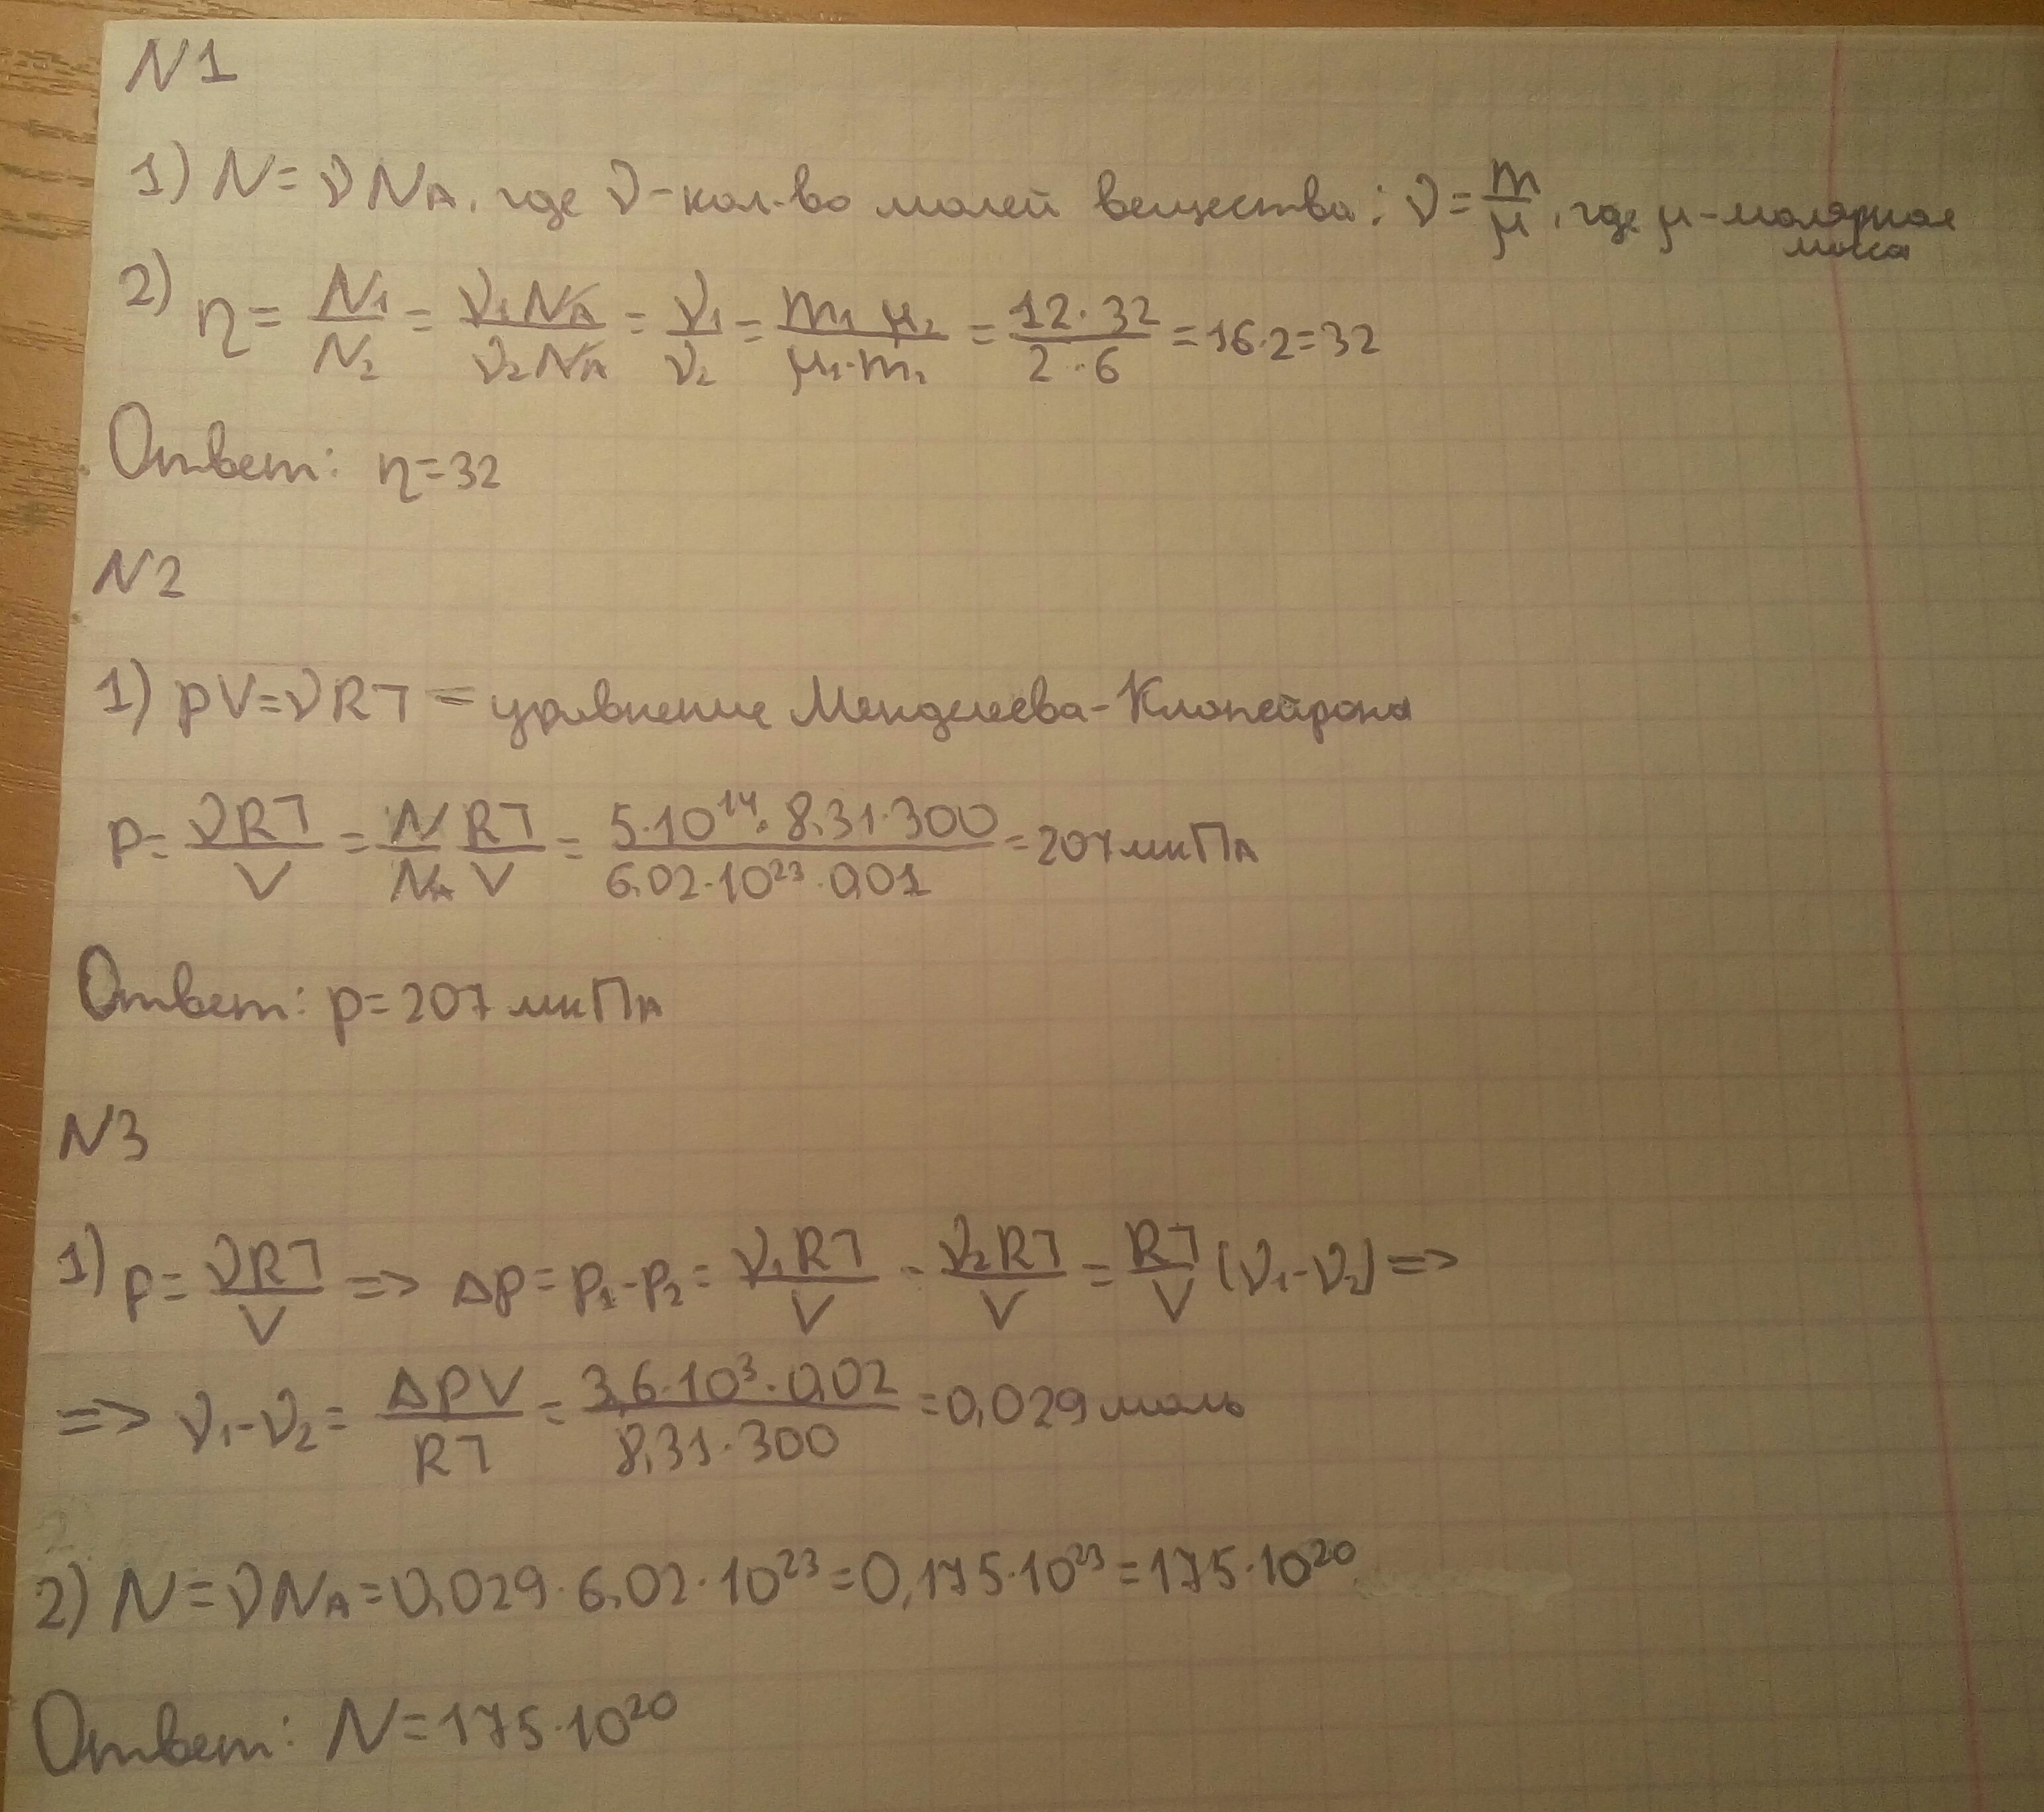 N1
1) N = νN_A, где ν - кол-во молей вещества; ν = m/μ, где μ - молярная масса
2) η = N₁/N₂ = ν₁N_A/ν₂N_A = ν₁/ν₂ = m₁ μ₂/μ₁·m₂ = 12·32/2·6 = 16·2 = 32
Ответ: η = 32
N2
1) pV = νRT = уравнение Менделеева-Клапейрона
p = νRT/V = N/N_A RT/V = 5·10¹⁴·8,31·300/6,02·10²³·0,01 = 207 мкПа
Ответ: p = 207 мкПа
N3
1) p = νRT/V => Δp = p₁-p₂ = ν₁RT/V - ν₂RT/V = RT/V (ν₁-ν₂) =>
=> ν₁-ν₂ = ΔpV/RT = 3,6·10³·0,02/8,31·300 = 0,029 моль
2) N = νN_A = 0,029·6,02·10²³ = 0,175·10²³ = 175·10²⁰
Ответ: N = 175·10²⁰